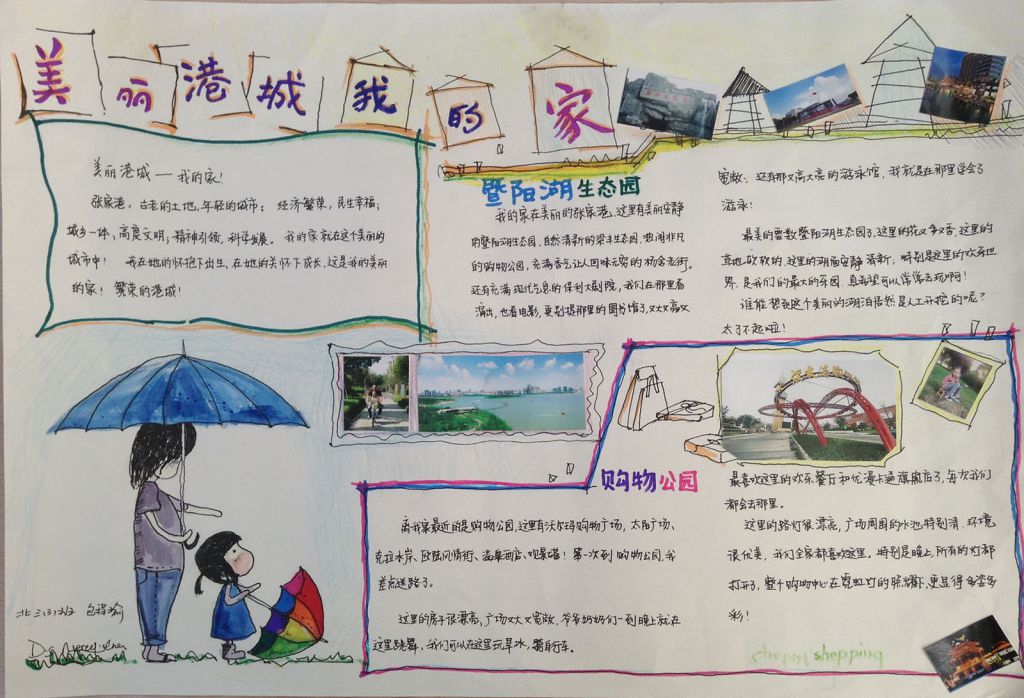 美丽港城我的家
美丽港城——我的家!
张家港:古老的土地,年轻的城市;经济繁荣,民生幸福;
城乡一体、高度文明;精神引领,科学发展。我的家就在这个美丽的
城市中!我在她的怀抱下出生,在她的关怀下成长,这是我的美丽
的家!繁荣的港城!
暨阳湖生态园
我的家在美丽的张家港,这里有美丽安静
的暨阳湖生态园,自然清新的梁丰生态园,热闹非凡
的购物公园,充满香气让人回味无穷的杨舍老街。
还有充满现代气息的保利大剧院,我们在那里看
演出,也看电影,更别提那里的图书馆了,又大又高又
宽敞;还有那又高大亮的游泳馆,我就是在那里学会了
游泳!
最美的要数暨阳湖生态园了,这里的花又多又香,这里的
草地软软的,这里的湖面安静清新;特别是这里的欢乐世
界,是我们的最大的乐园,真希望可以常常去玩啊!
谁能想到这个美丽的湖泊居然是人工开挖的呢?
太了不起啦!
购物公园
离我家最近的是购物公园,这里有沃尔玛购物广场、太阳广场、
克拉水岸、欧陆风情街、温泉酒店、观景塔!第一次到购物公园,我
差点迷路了。
这里的房子很漂亮,广场又大又宽敞,爷爷奶奶们一到晚上就在
这里跳舞,我们可以在这里玩旱冰,骑自行车。
最喜欢这里的欢乐餐厅和优漫卡通旗舰店了,每次我们
都会去那里。
这里的路灯很漂亮,广场周围的水池特别清,环境
很优美,我们全家都喜欢这里。特别是晚上,所有的灯都
打开了,整个购物中心在霓虹灯的照耀下,更显得多姿多
彩!
北三(3)班